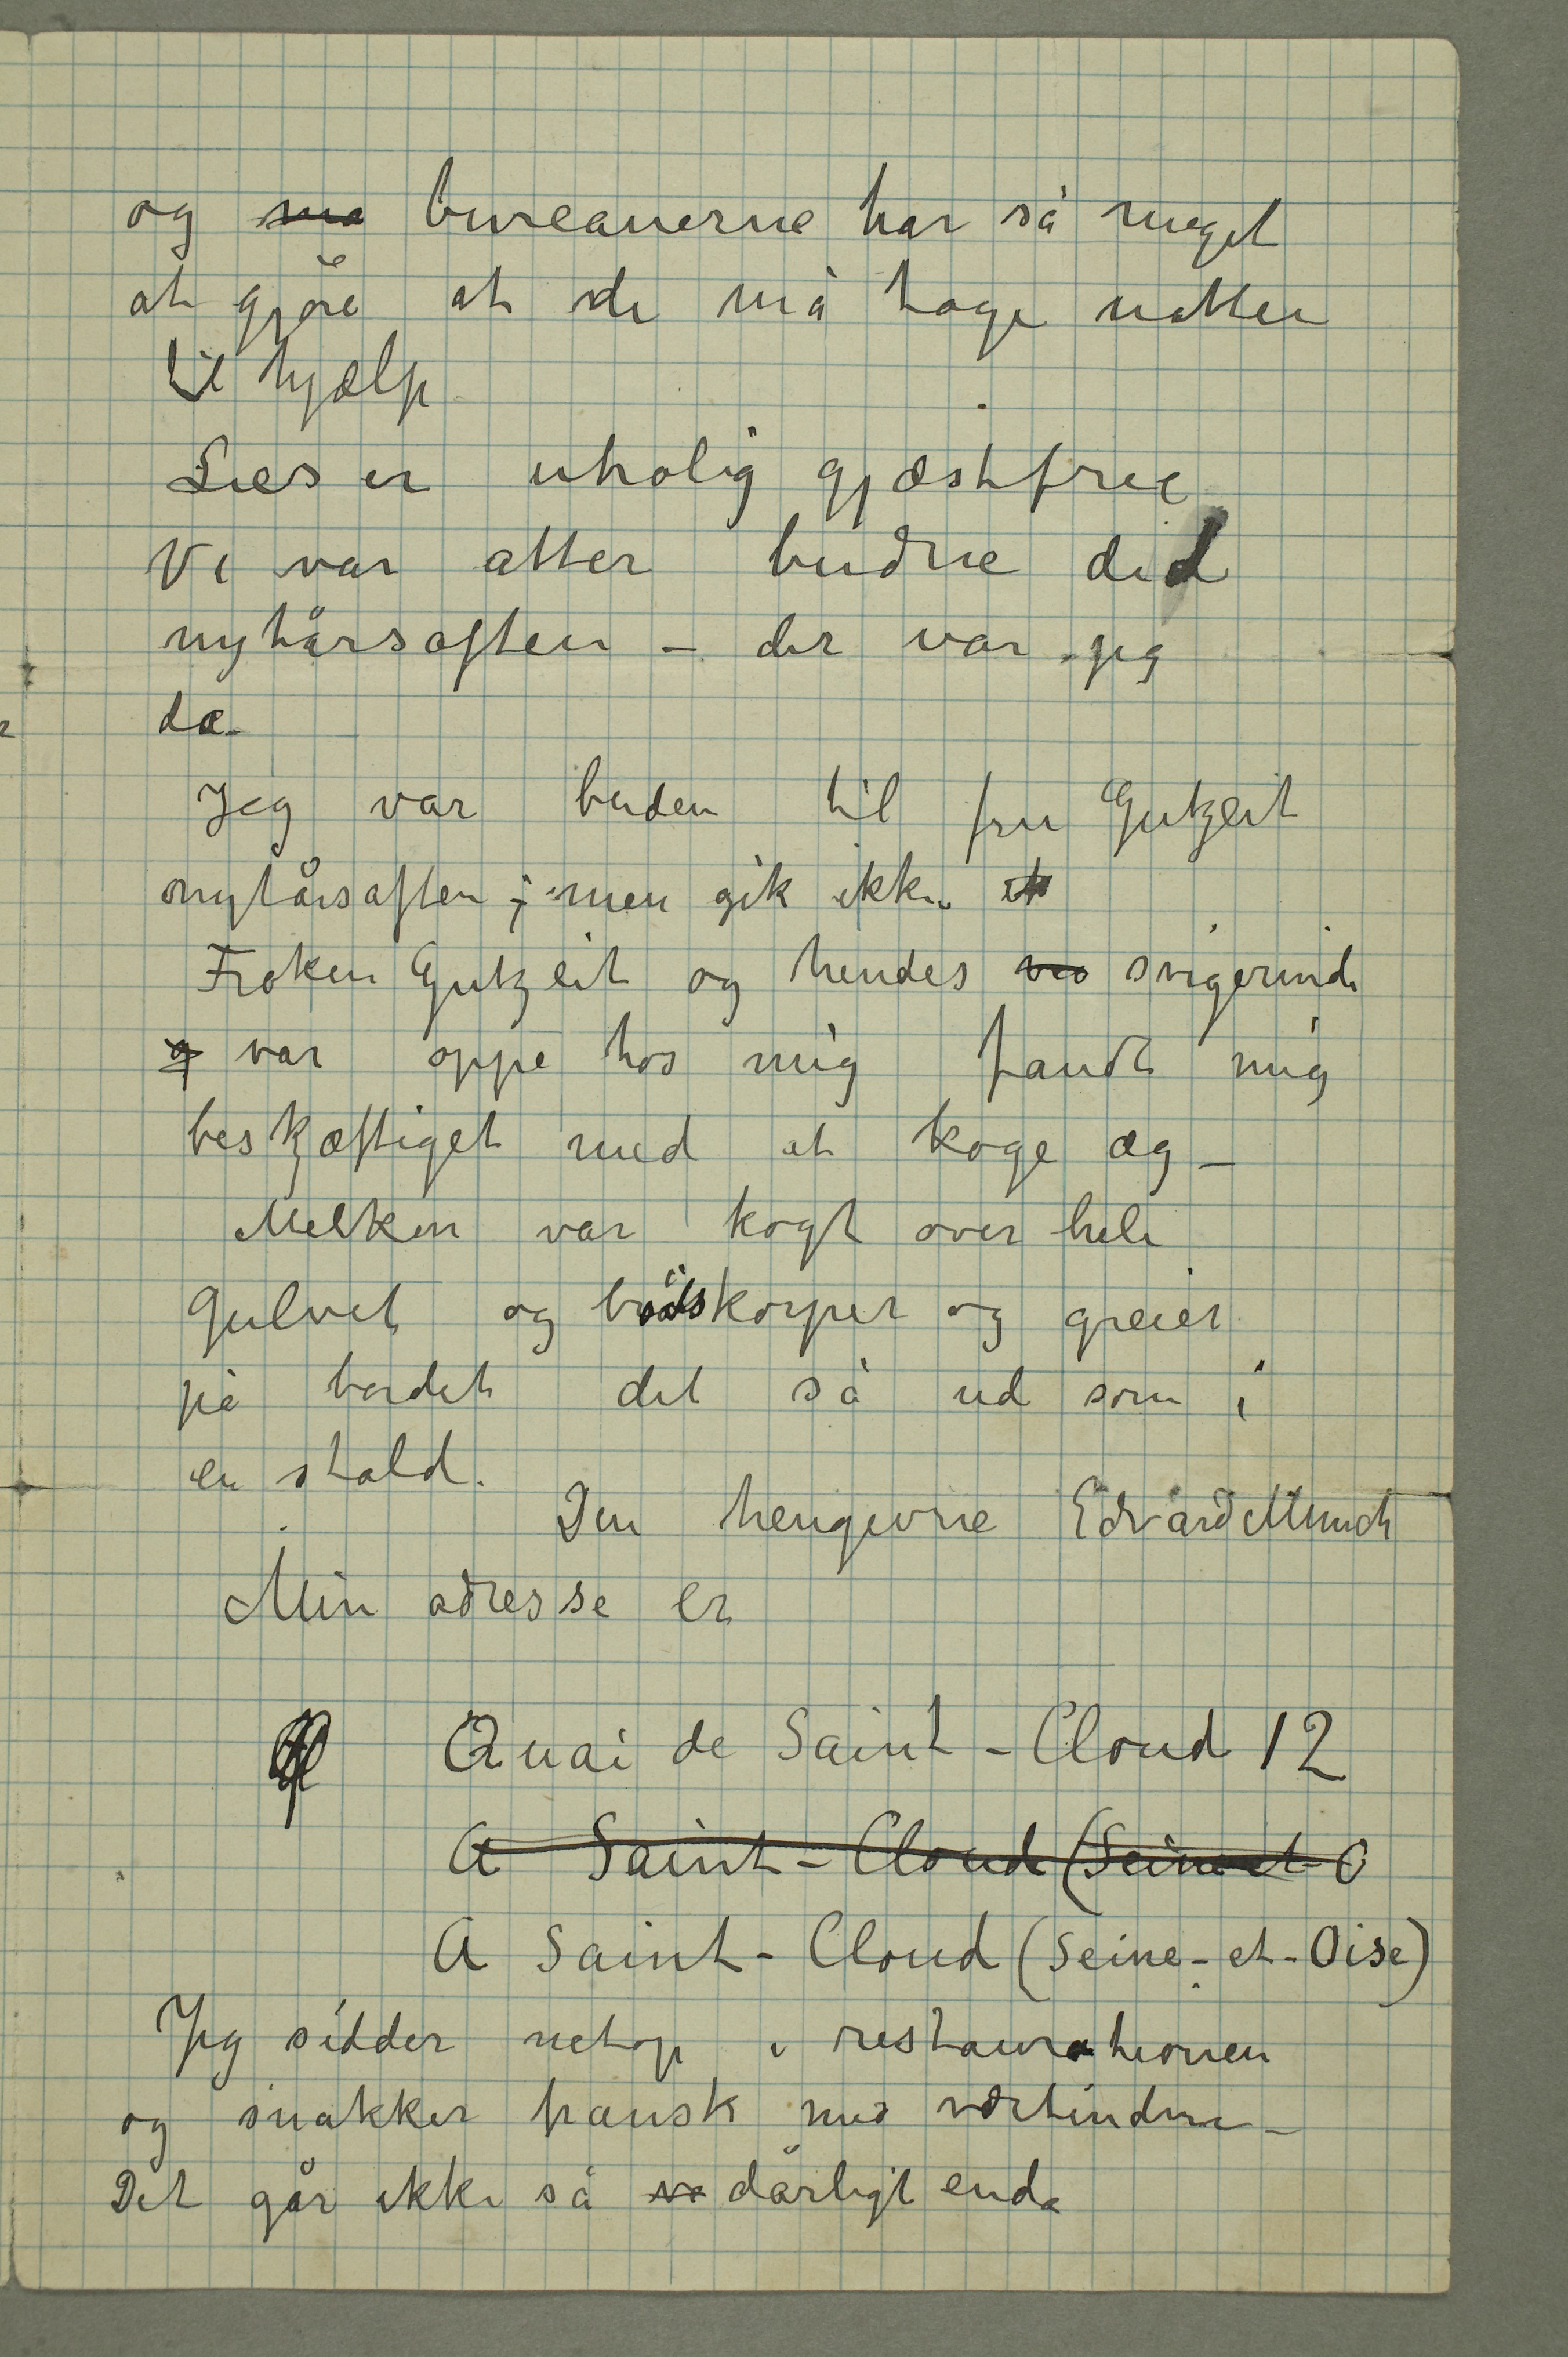 og ma bureauerne har så meget
at gjöre at de må tage natten
til hjælp
Lies er utrolig gjæstfrie
Vi var atter budne did
nytårsaften – der var jeg
da.
Jeg var buden til fru Gutzeit
nytårsaften; men gik ikke
Frøken Gutzeit og hendes svigerinde
var oppe hos mig fandt mig
beskjæftiget med at koge æg –
Melken var kogt over hele
gulvet og brödskorper og greier
på bordet det så ud som i
en stald.
Den hengivne Edvard Munch
Min adresse er
Quai de Saint-Cloud 12
A Saint-Cloud (Seine et O
A Saint-Cloud (Seine-et-Oise)
Jeg sidder netop i restaurationen
og snakker fransk med værtinden –
Det går ikke så dårligt enda